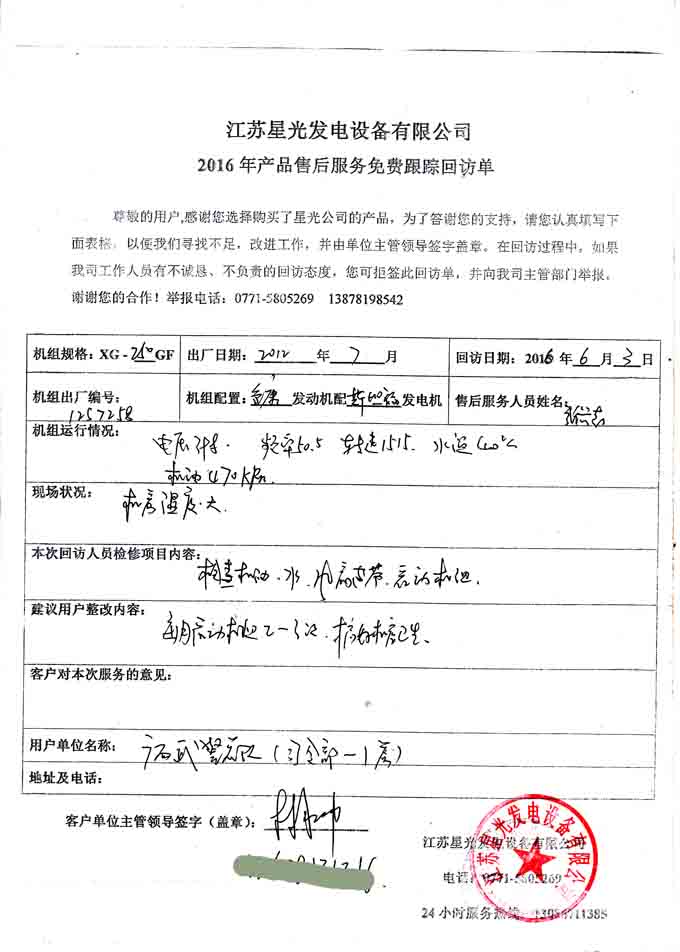 江苏星光发电设备有限公司
2016 年产品售后服务免费跟踪回访单
尊敬的用户,感谢您选择购买了星光公司的产品，为了答谢您的支持，请您认真填写下
面表格，以便我们寻找不足，改进工作，并由单位主管领导签字盖章。在回访过程中，如果
我司工作人员有不诚恳、不负责的回访态度，您可拒签此回访单，并向我司主管部门举报。
谢谢您的合作！举报电话：0771-5805269 13878198542
机组规格：XG - 250 GF 出厂日期：2012 年 7 月 回访日期：2016 年 6 月 3 日
机组出厂编号： 机组配置： 发动机配 发电机 售后服务人员姓名：
1257258
机组运行情况：
频率50.5 转速1515. 水温
机油470KPa
现场状况：
机房湿度大.
本次回访人员检修项目内容：
检查机油、水、风扇皮带、启动机组.
建议用户整改内容：
每月启动机组2-3次. 搞好机房卫生、
客户对本次服务的意见：
用户单位名称：
地址及电话：
客户单位主管领导签字（盖章）：
江苏星光发电设备有限公司
江苏星光发电设备有限公司
电话：0771-5805269
24 小时服务热线